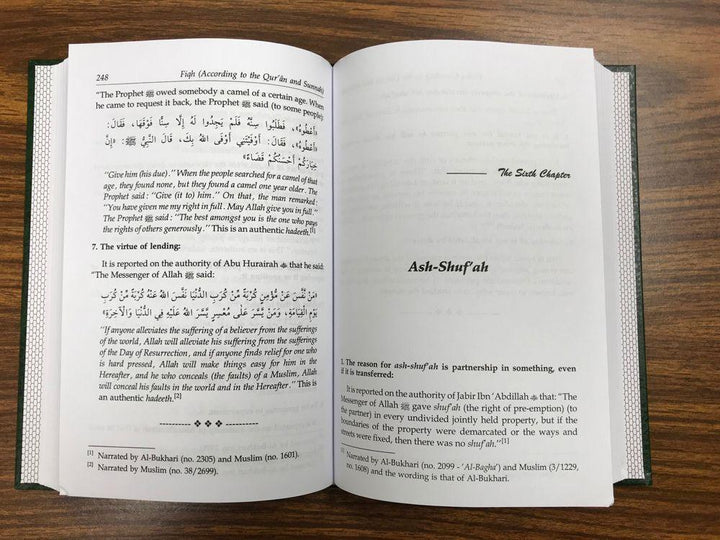 248
Fiqh (According to the Qur'ân and Sunnah)
"The Prophet ﷺ owed somebody a camel of a certain age. When
he came to request it back, the Prophet ﷺ said (to some people):
«أَعْطُوهُ»، فَطَلَبُوا سِنَّهُ فَلَمْ يَجِدُوا لَهُ إِلَّا سِنًّا فَوْقَهَا، فَقَالَ:
«أَعْطُوهُ»، فَقَالَ: أَوْفَيْتَنِي أَوْفَى اللهُ بِكَ، قَالَ النَّبِيُّ ﷺ: «إِنَّ
خِيَارَكُمْ أَحْسَنُكُمْ قَضَاءً»
"Give him (his due)." When the people searched for a camel of that
age, they found none, but they found a camel one year older. The
Prophet said: "Give (it to) him." On that, the man remarked:
"You have given me my right in full. May Allah give you in full."
The Prophet ﷺ said: "The best amongst you is the one who pays
the rights of others generously." This is an authentic hadeeth.[1]
7. The virtue of lending:
It is reported on the authority of Abu Hurairah that he said:
"The Messenger of Allah ﷺ said:
«مَنْ نَفَّسَ عَنْ مُؤْمِنٍ كُرْبَةً مِنْ كُرَبِ الدُّنْيَا نَفَّسَ اللهُ عَنْهُ كُرْبَةً مِنْ كُرَبِ
يَوْمِ الْقِيَامَةِ، وَمَنْ يَسَّرَ عَلَى مُعْسِرٍ يَسَّرَ اللهُ عَلَيْهِ فِي الدُّنْيَا وَالْآخِرَةِ»
"If anyone alleviates the suffering of a believer from the sufferings
of the world, Allah will alleviate his suffering from the sufferings
of the Day of Resurrection, and if anyone finds relief for one who
is hard pressed, Allah will make things easy for him in the
Hereafter, and he who conceals (the faults) of a Muslim, Allah
will conceal his faults in the world and in the Hereafter." This is
an authentic hadeeth.[2]
[1] Narrated by Al-Bukhari (no. 2305) and Muslim (no. 1601).
[2] Narrated by Muslim (no. 38/2699).
The Sixth Chapter
Ash-Shuf'ah
1. The reason for ash-shuf'ah is partnership in something, even
if it is transferred:
It is reported on the authority of Jabir Ibn 'Abdillah that: "The
Messenger of Allah ﷺ gave shuf'ah (the right of pre-emption) (to
the partner) in every undivided jointly held property, but if the
boundaries of the property were demarcated or the ways and
streets were fixed, then there was no shuf'ah."[1]
Narrated by Al-Bukhari (no. 2099 - 'Al-Bagha') and Muslim (3/1229,
no. 1608) and the wording is that of Al-Bukhari.